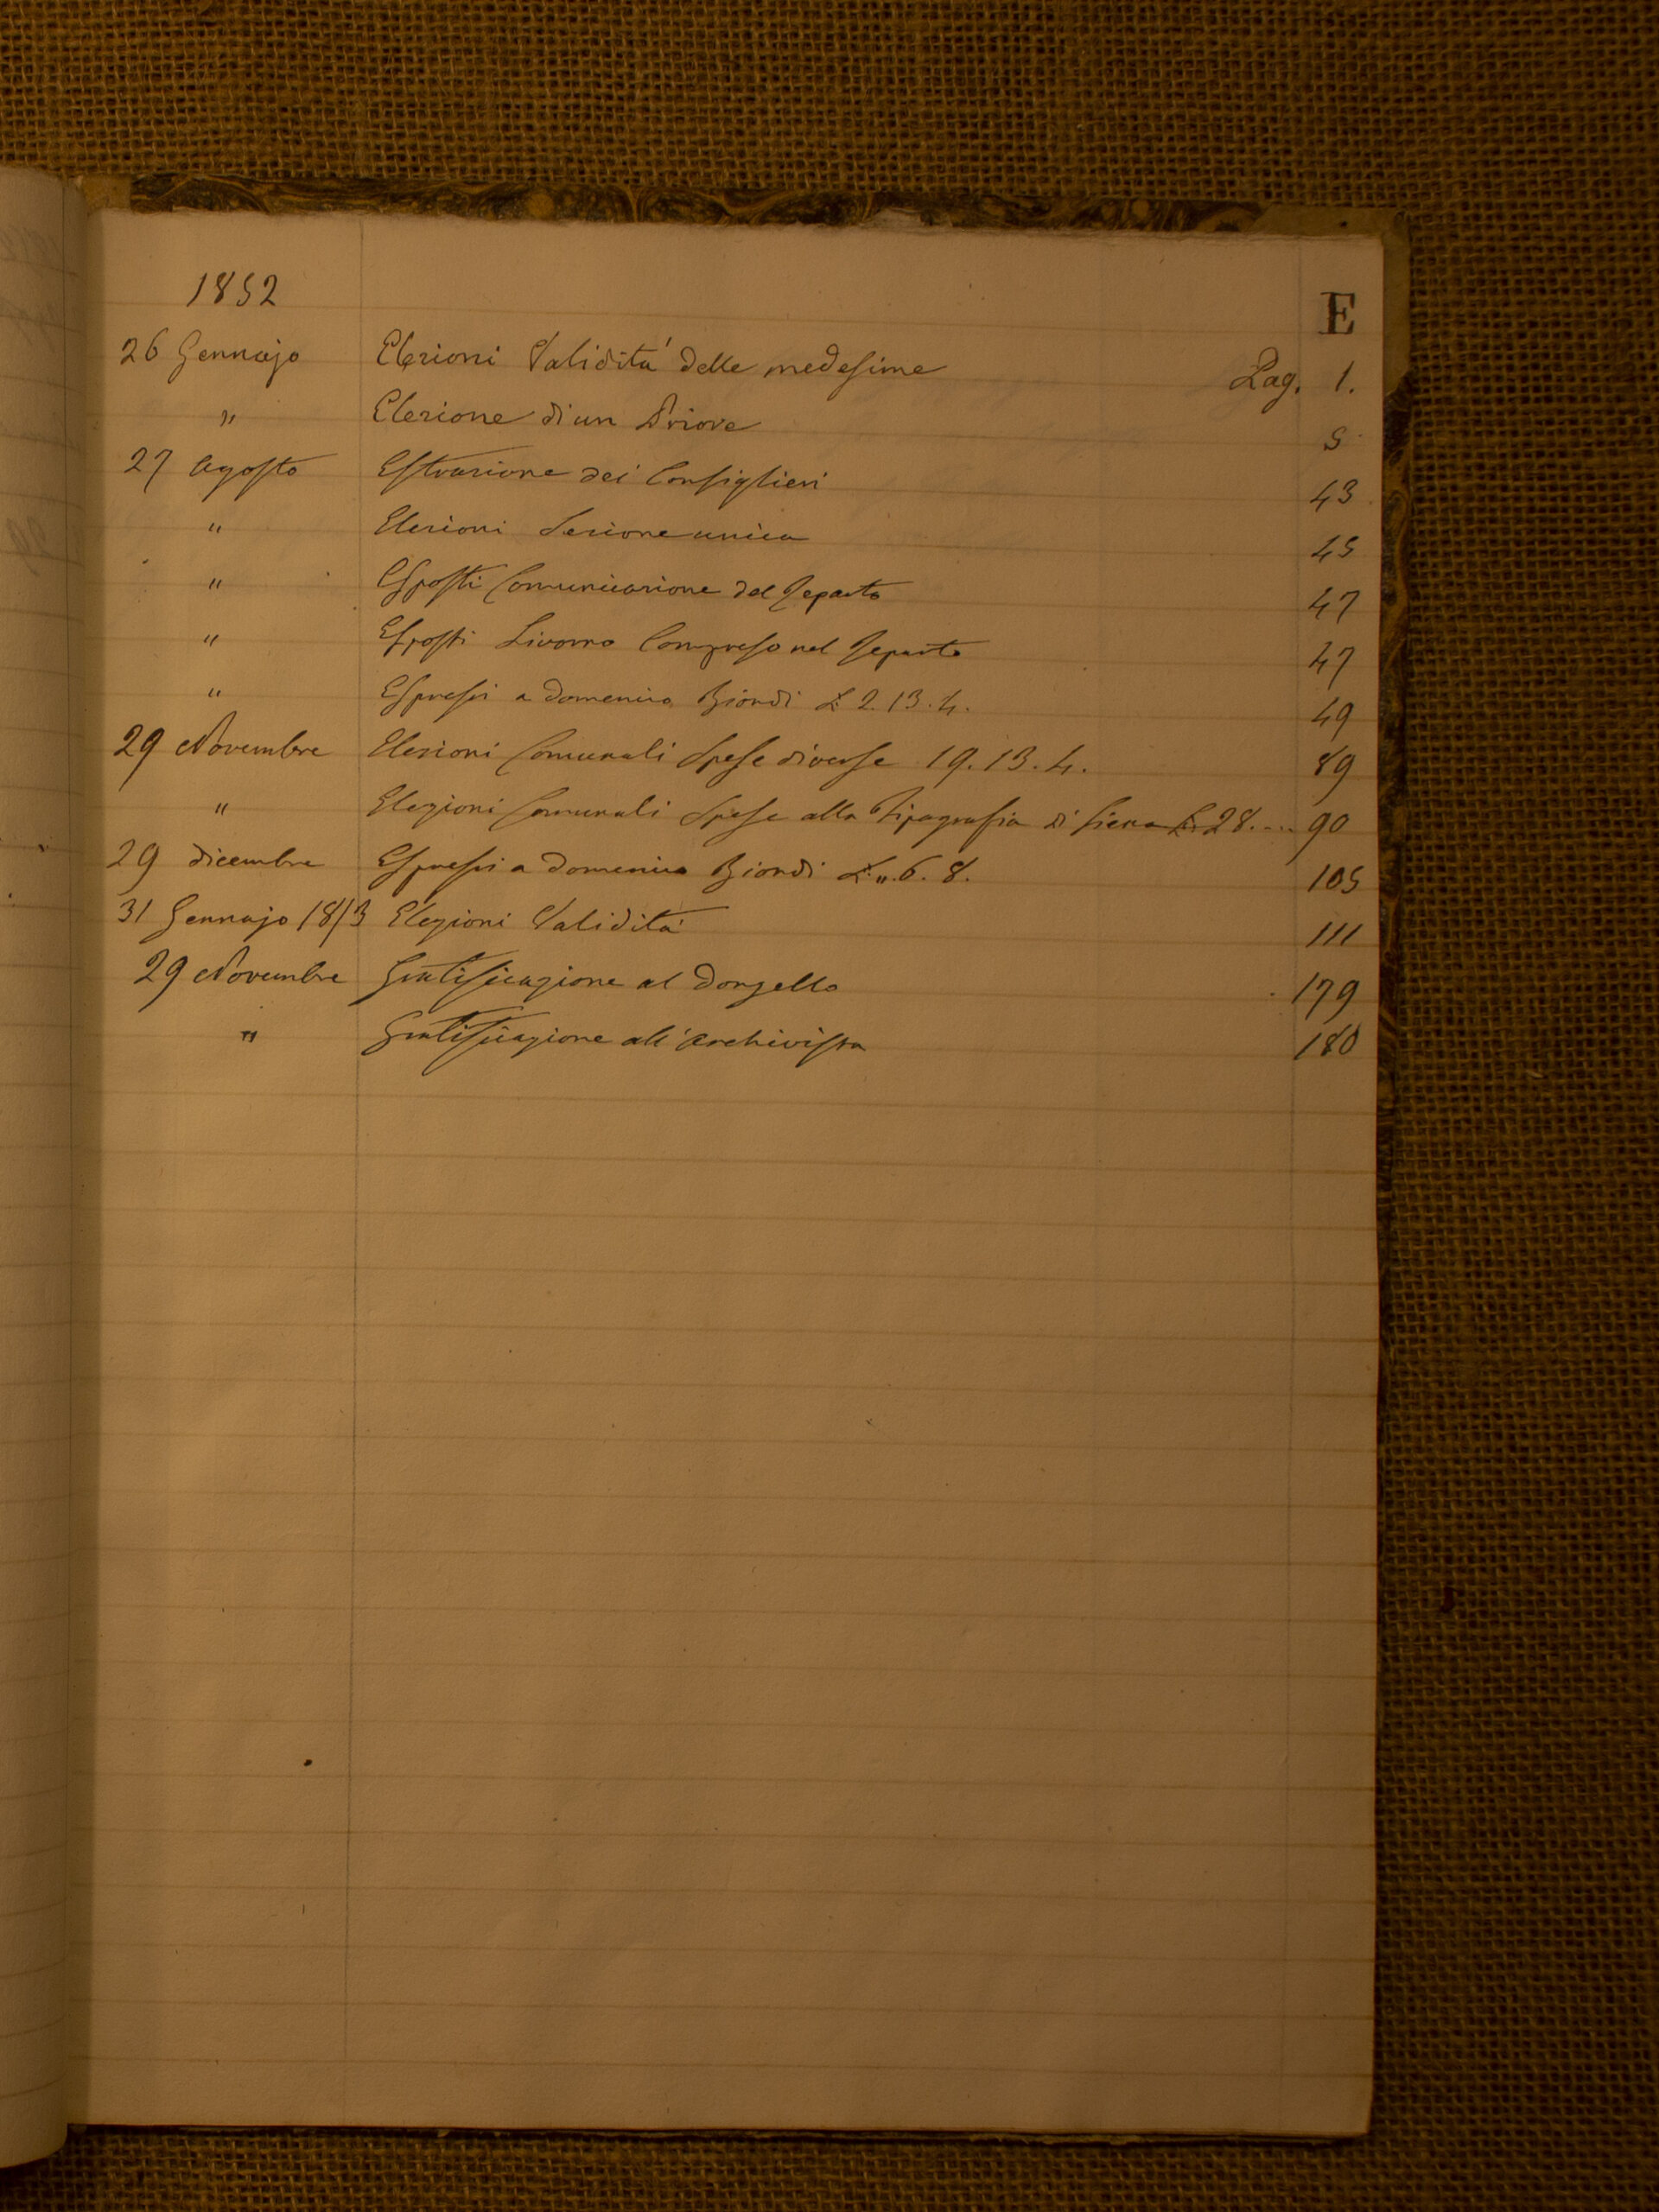 1852
E
26 Gennajo Elezioni Validità delle medesime Pag. 1.
" Elezione di un Priore 5
27 Agosto Estrazione dei Consiglieri 43
" Elezioni Sezione unica 45
" Esposti Comunicazione del Reparto 47
" Esposti Livorno Compreso nel Reparto 47
" Espressi a Domenico Biondi £ 2. 13. 4. 49
29 Novembre Elezioni Comunali Spese diverse 19. 13. 4. 89
" Elezioni Comunali Spese alla Tipografia di Siena £ 28. ... 90
29 dicembre Espressi a Domenico Biondi £ ". 6. 8. 105
31 Gennajo 1853 Elezioni Validità 111
29 Novembre Gratificazione al Donzello 179
" Gratificazione all'Archivista 180